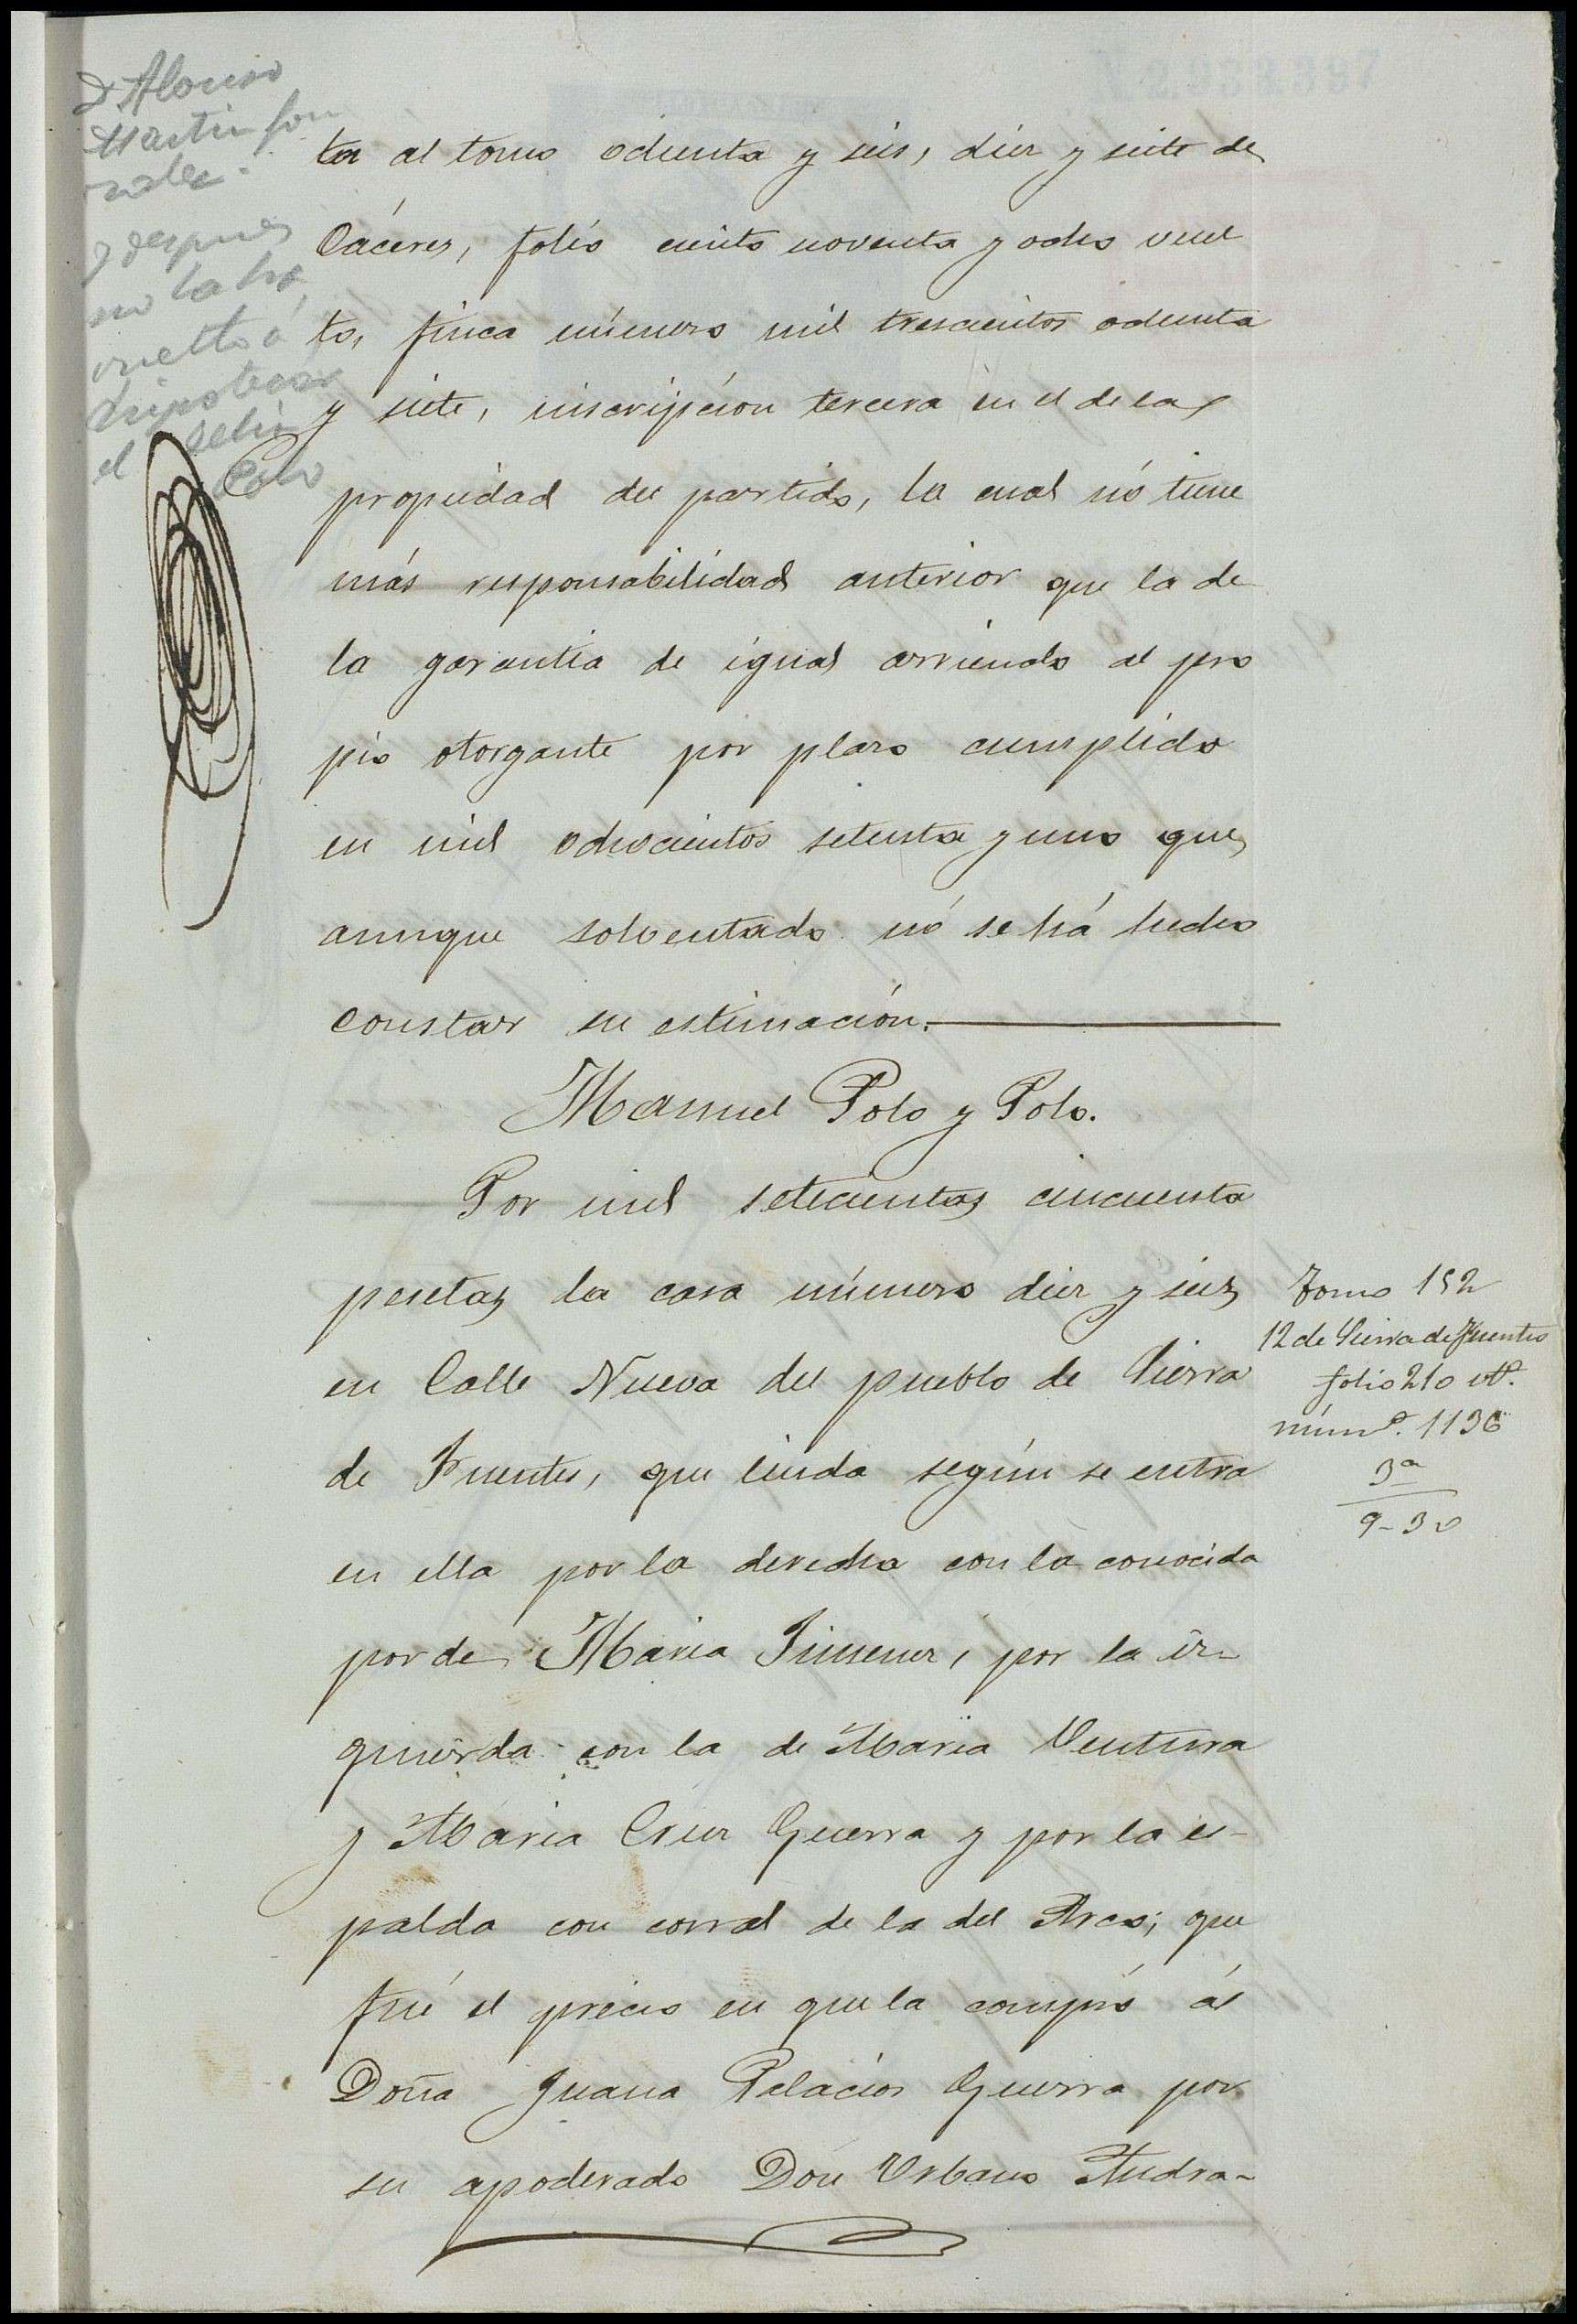 D. Alonso
Martin Gon
zalez.
y despues
no la ha
vuelto á
hipotecar
el
Polo
ta al tomo ochenta y seis, diez y siete de
Cáceres, folio ciento noventa y ocho vuel
to, finca número mil trescientos ochenta
y siete, inscripción tercera en el de la
propiedad del partido, la cual nó tiene
más responsabilidad anterior que la de
la garantia de igual arriendo al pro
pio otorgante por plazo cumplido
en mil ochocientos setenta y uno que
aunque solventado nó se há hecho
constar su estimación.
Manuel Polo y Polo.
Por mil setecientas cincuenta
pesetas la casa número diez y seis
en Calle Nueva del pueblo de Sierra
de Fuentes, que linda según se entra
en ella por la derecha con la conocida
por de Maria Jimenez, por la iz-
quierda con la de Maria Ventura
y Maria Cruz Guerra y por la es-
palda con corral de la del Arco; que
fué el precio en que la compró á
Doña Juana Palacios Guerra por
su apoderado Don Urbano Andra-
Tomo 152
12 de Sierra de Fuentes
folio 210 vtº.
númº. 1136
3ª
9-30